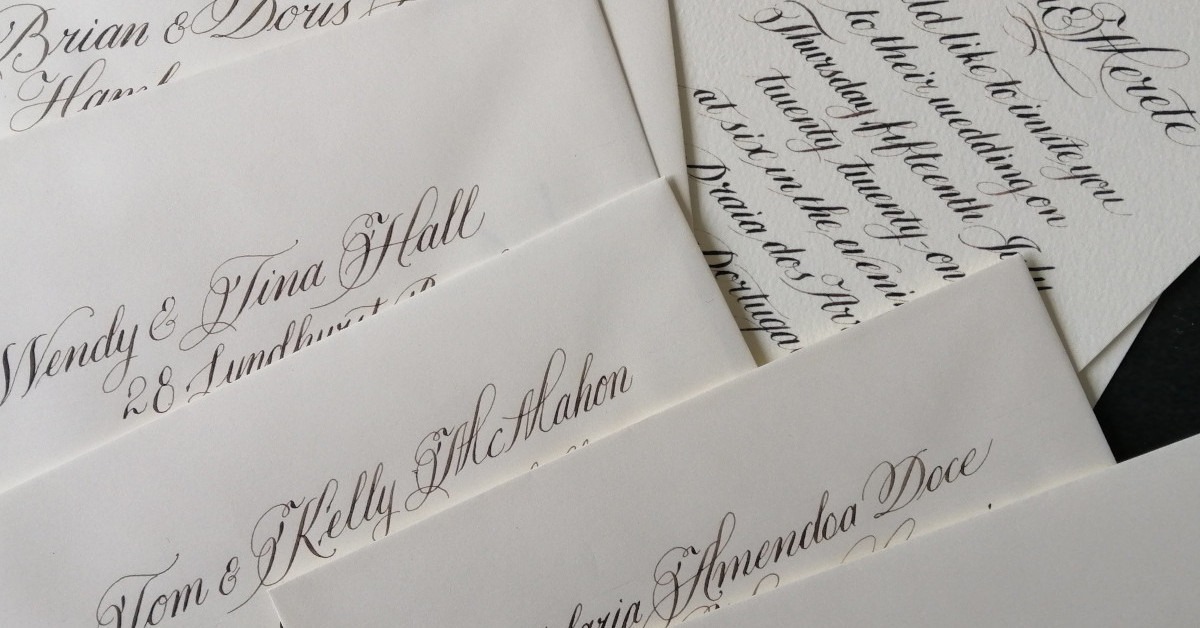 Brian & Doris
Wendy & Tina Hall
28 Lyndhurst
Tom & Kelly McMahon
Amendoa Doce
& Merete
like to invite you
to their wedding on
Thursday, fifteenth July
twenty twenty-on
at six in the eveni
Praia dos Arr
Portuga